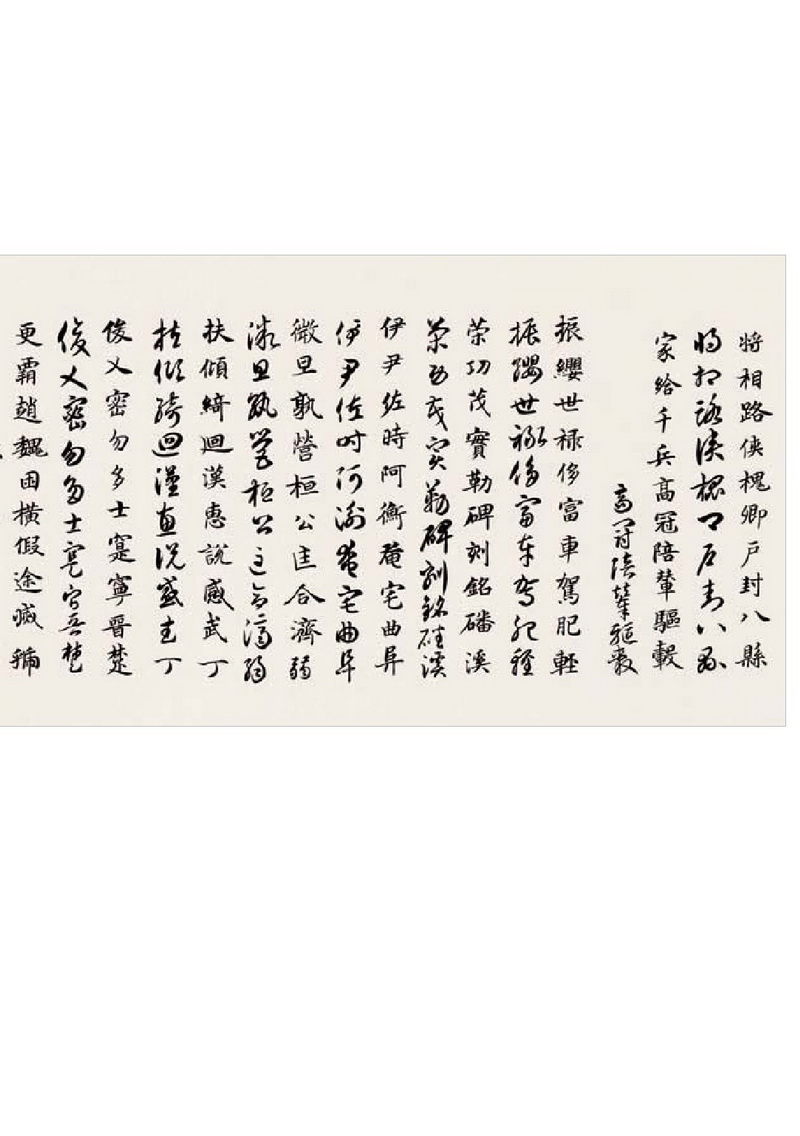 將相路俠槐卿戶封八縣
將相路俠槐卿戶封八縣
家給千兵高冠陪輦驅轂
高冠陪輦驅轂
振纓世祿侈富車駕肥輕
振纓世祿侈富車駕肥輕
策功茂實勒碑刻銘磻溪
策功茂實勒碑刻銘磻溪
伊尹佐時阿衡奄宅曲阜
伊尹佐時阿衡奄宅曲阜
微旦孰營桓公匡合濟弱
微旦孰營桓公匡合濟弱
扶傾綺迴漢惠說感武丁
扶傾綺迴漢惠說感武丁
俊乂密勿多士寔寧晉楚
俊乂密勿多士寔寧晉楚
更霸趙魏困橫假途滅虢